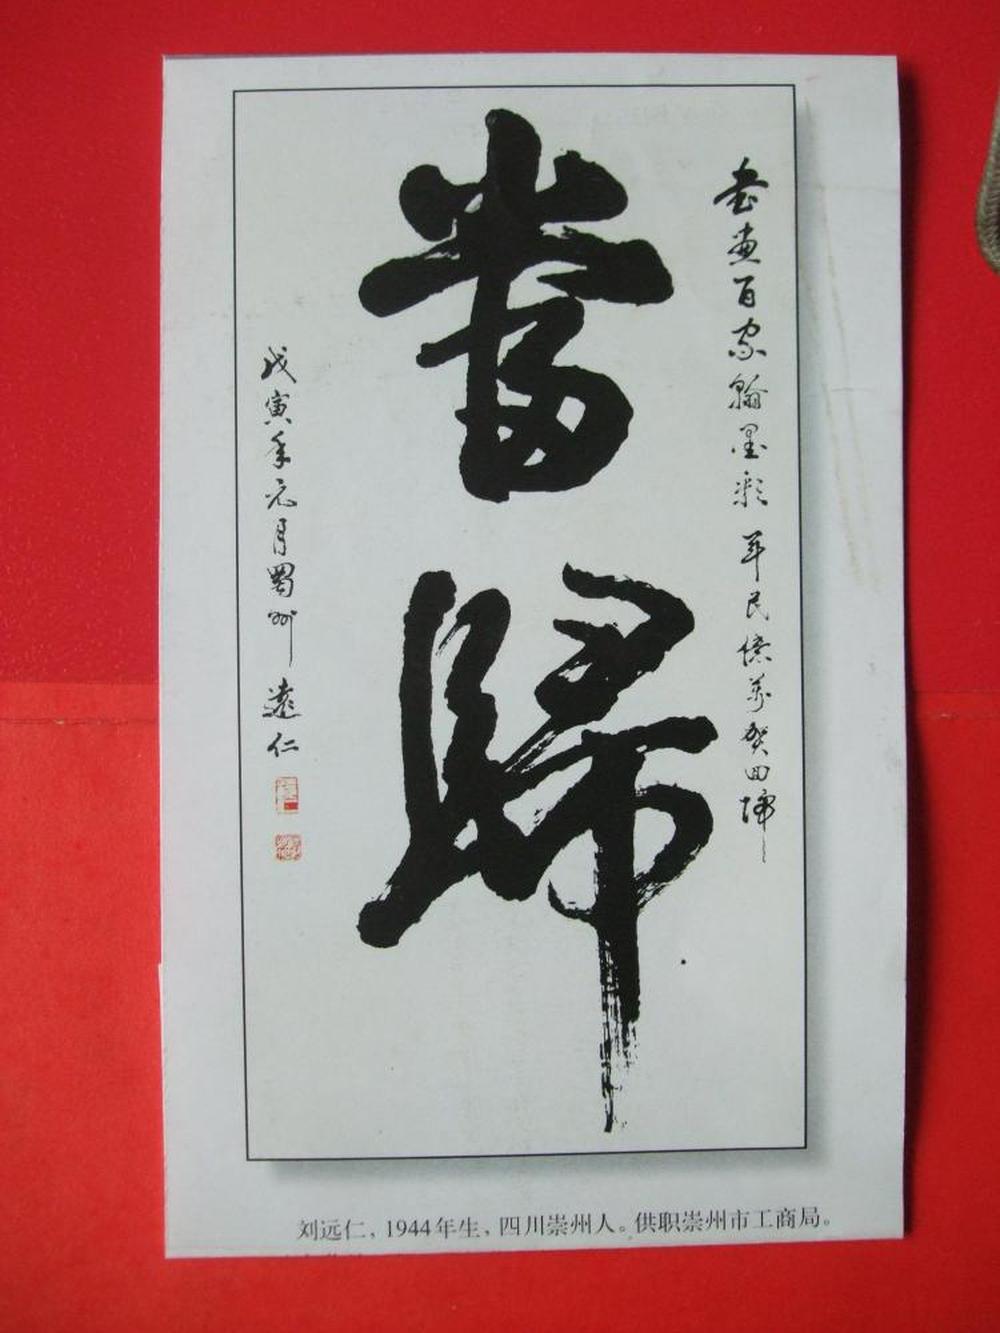 書畫百家翰墨彩
軍民億萬賀回歸
當歸
戊寅年元月蜀州
遠仁
刘远仁，1944年生，四川崇州人。供职崇州市工商局。